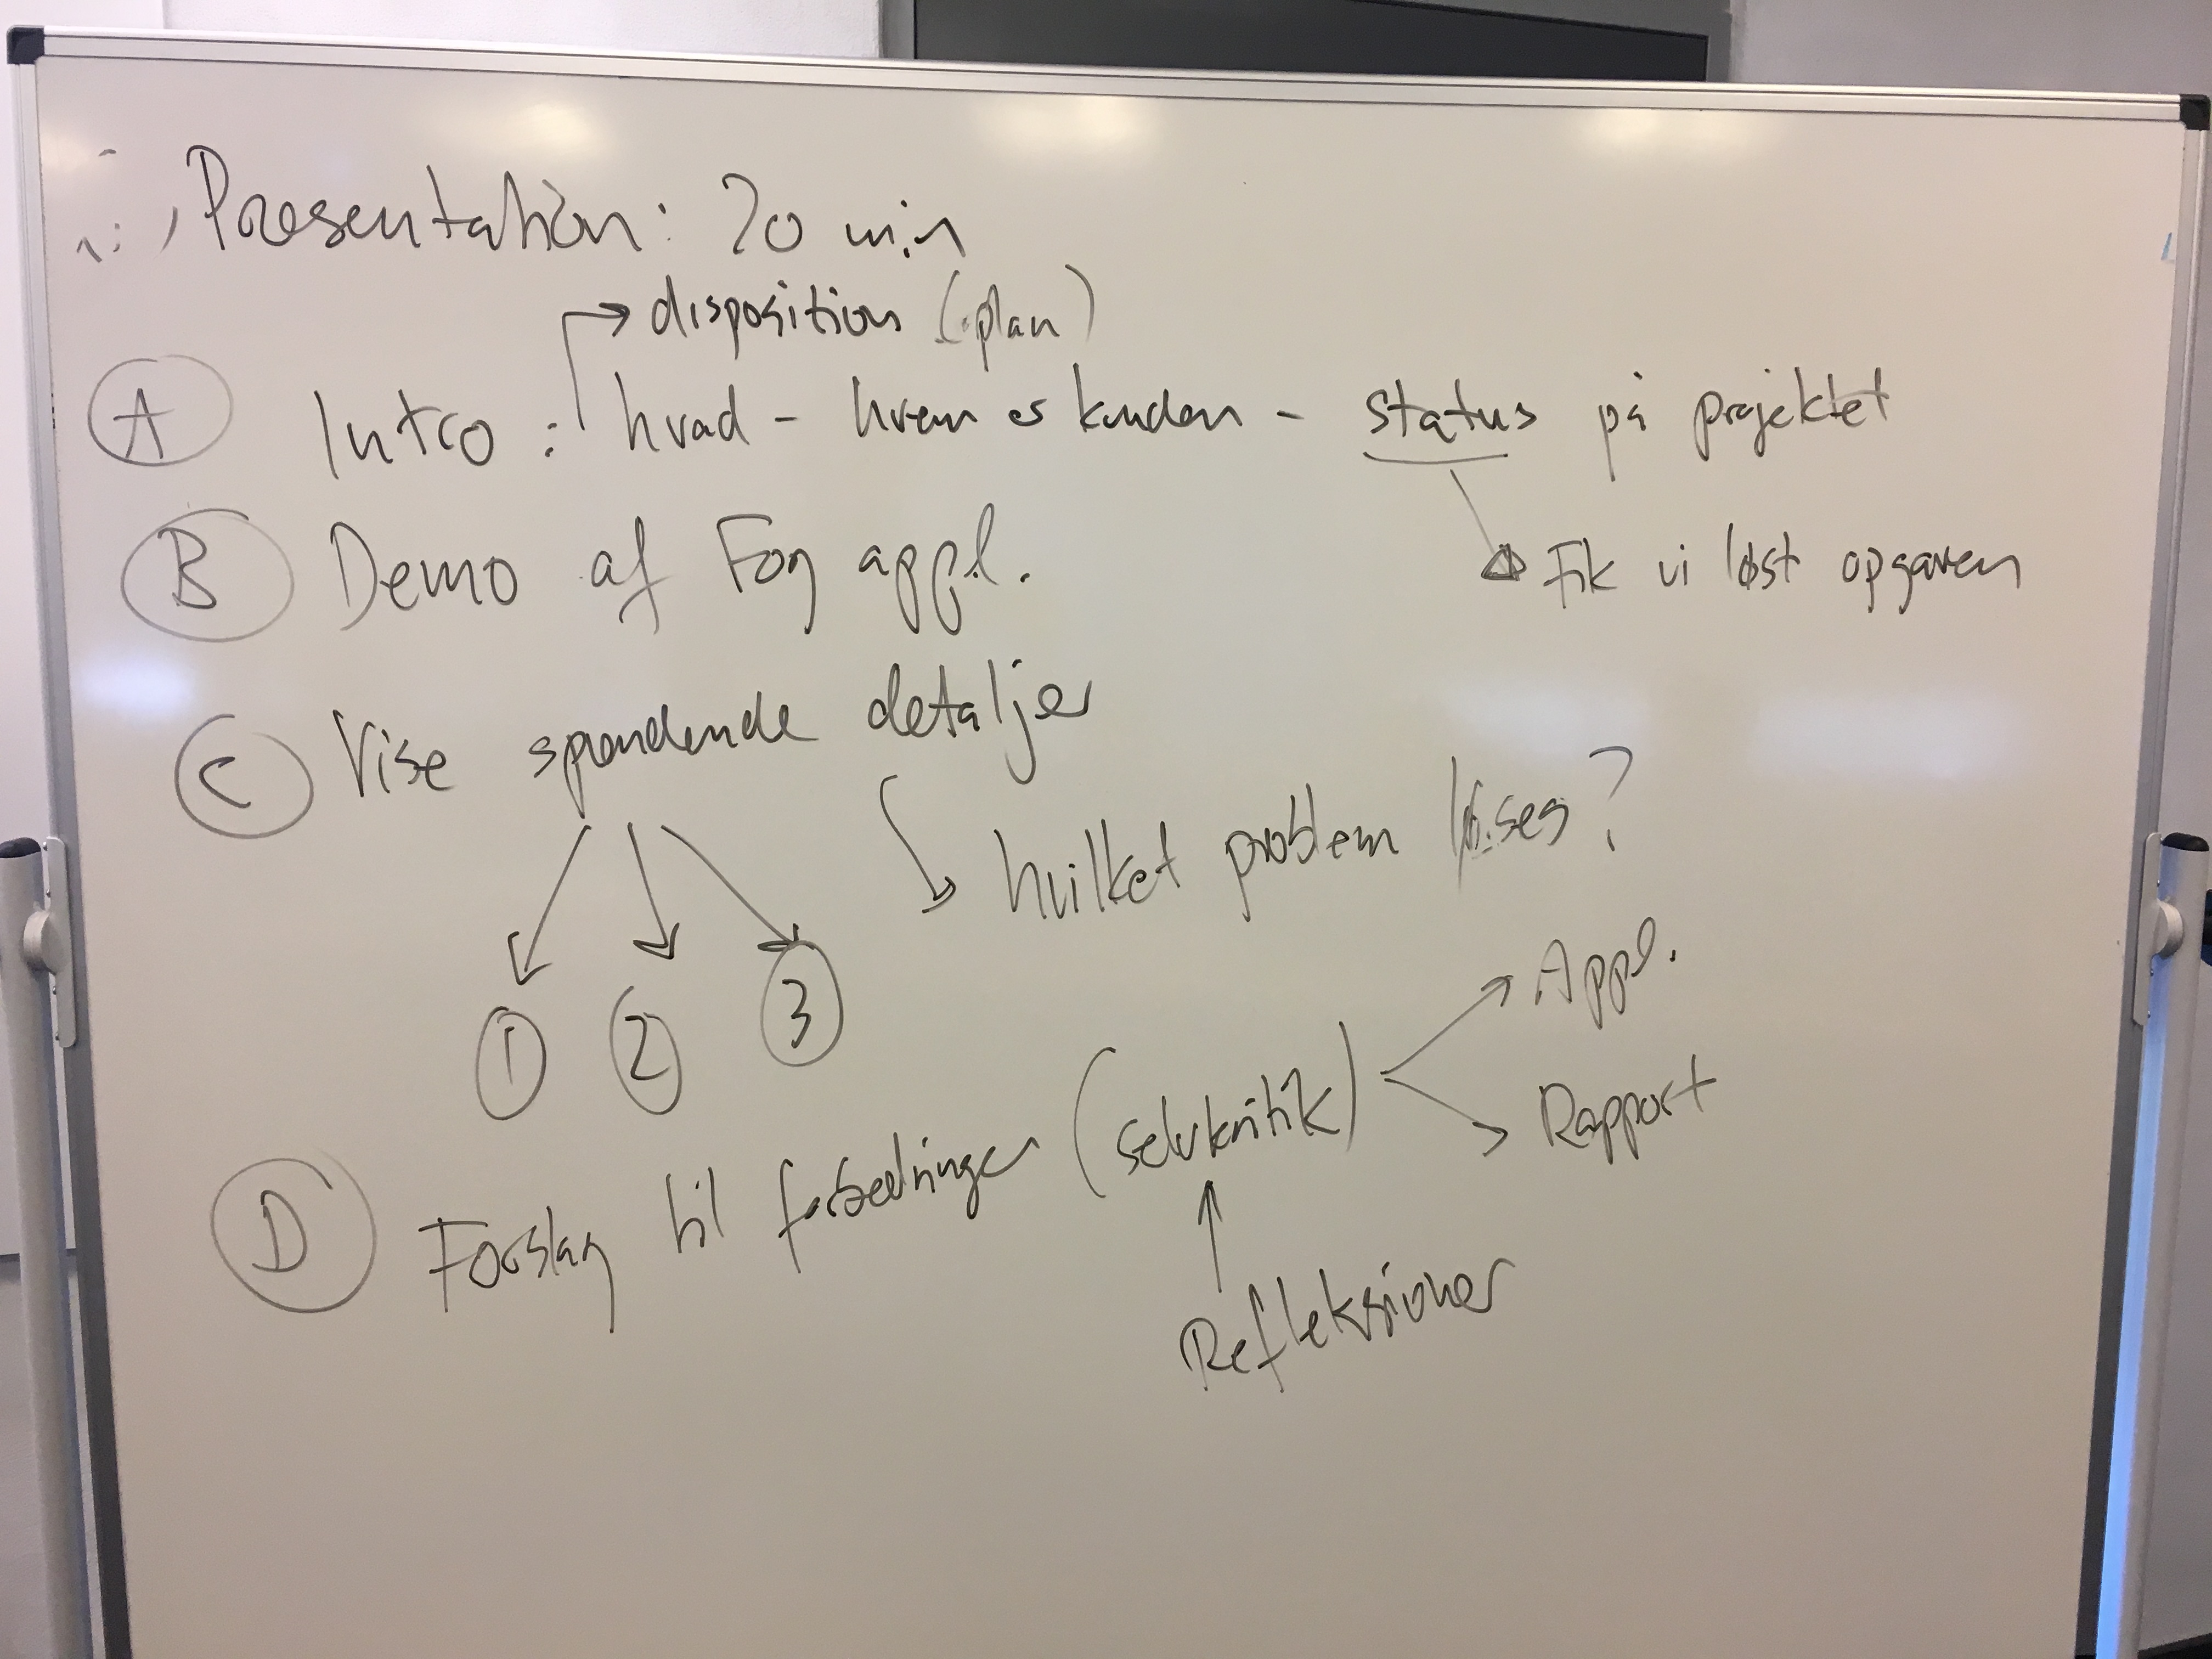 Præsentation: 20 min
disposition (plan)
A Intro: hvad - hvem er kunden - status på projektet
Fik vi løst opgaven
B Demo af Fog appl.
C Vise spændende detaljer
hvilket problem løses?
1 2 3
Appl.
Rapport
D Forslag til forbedringer (selvkritik)
Refleksioner